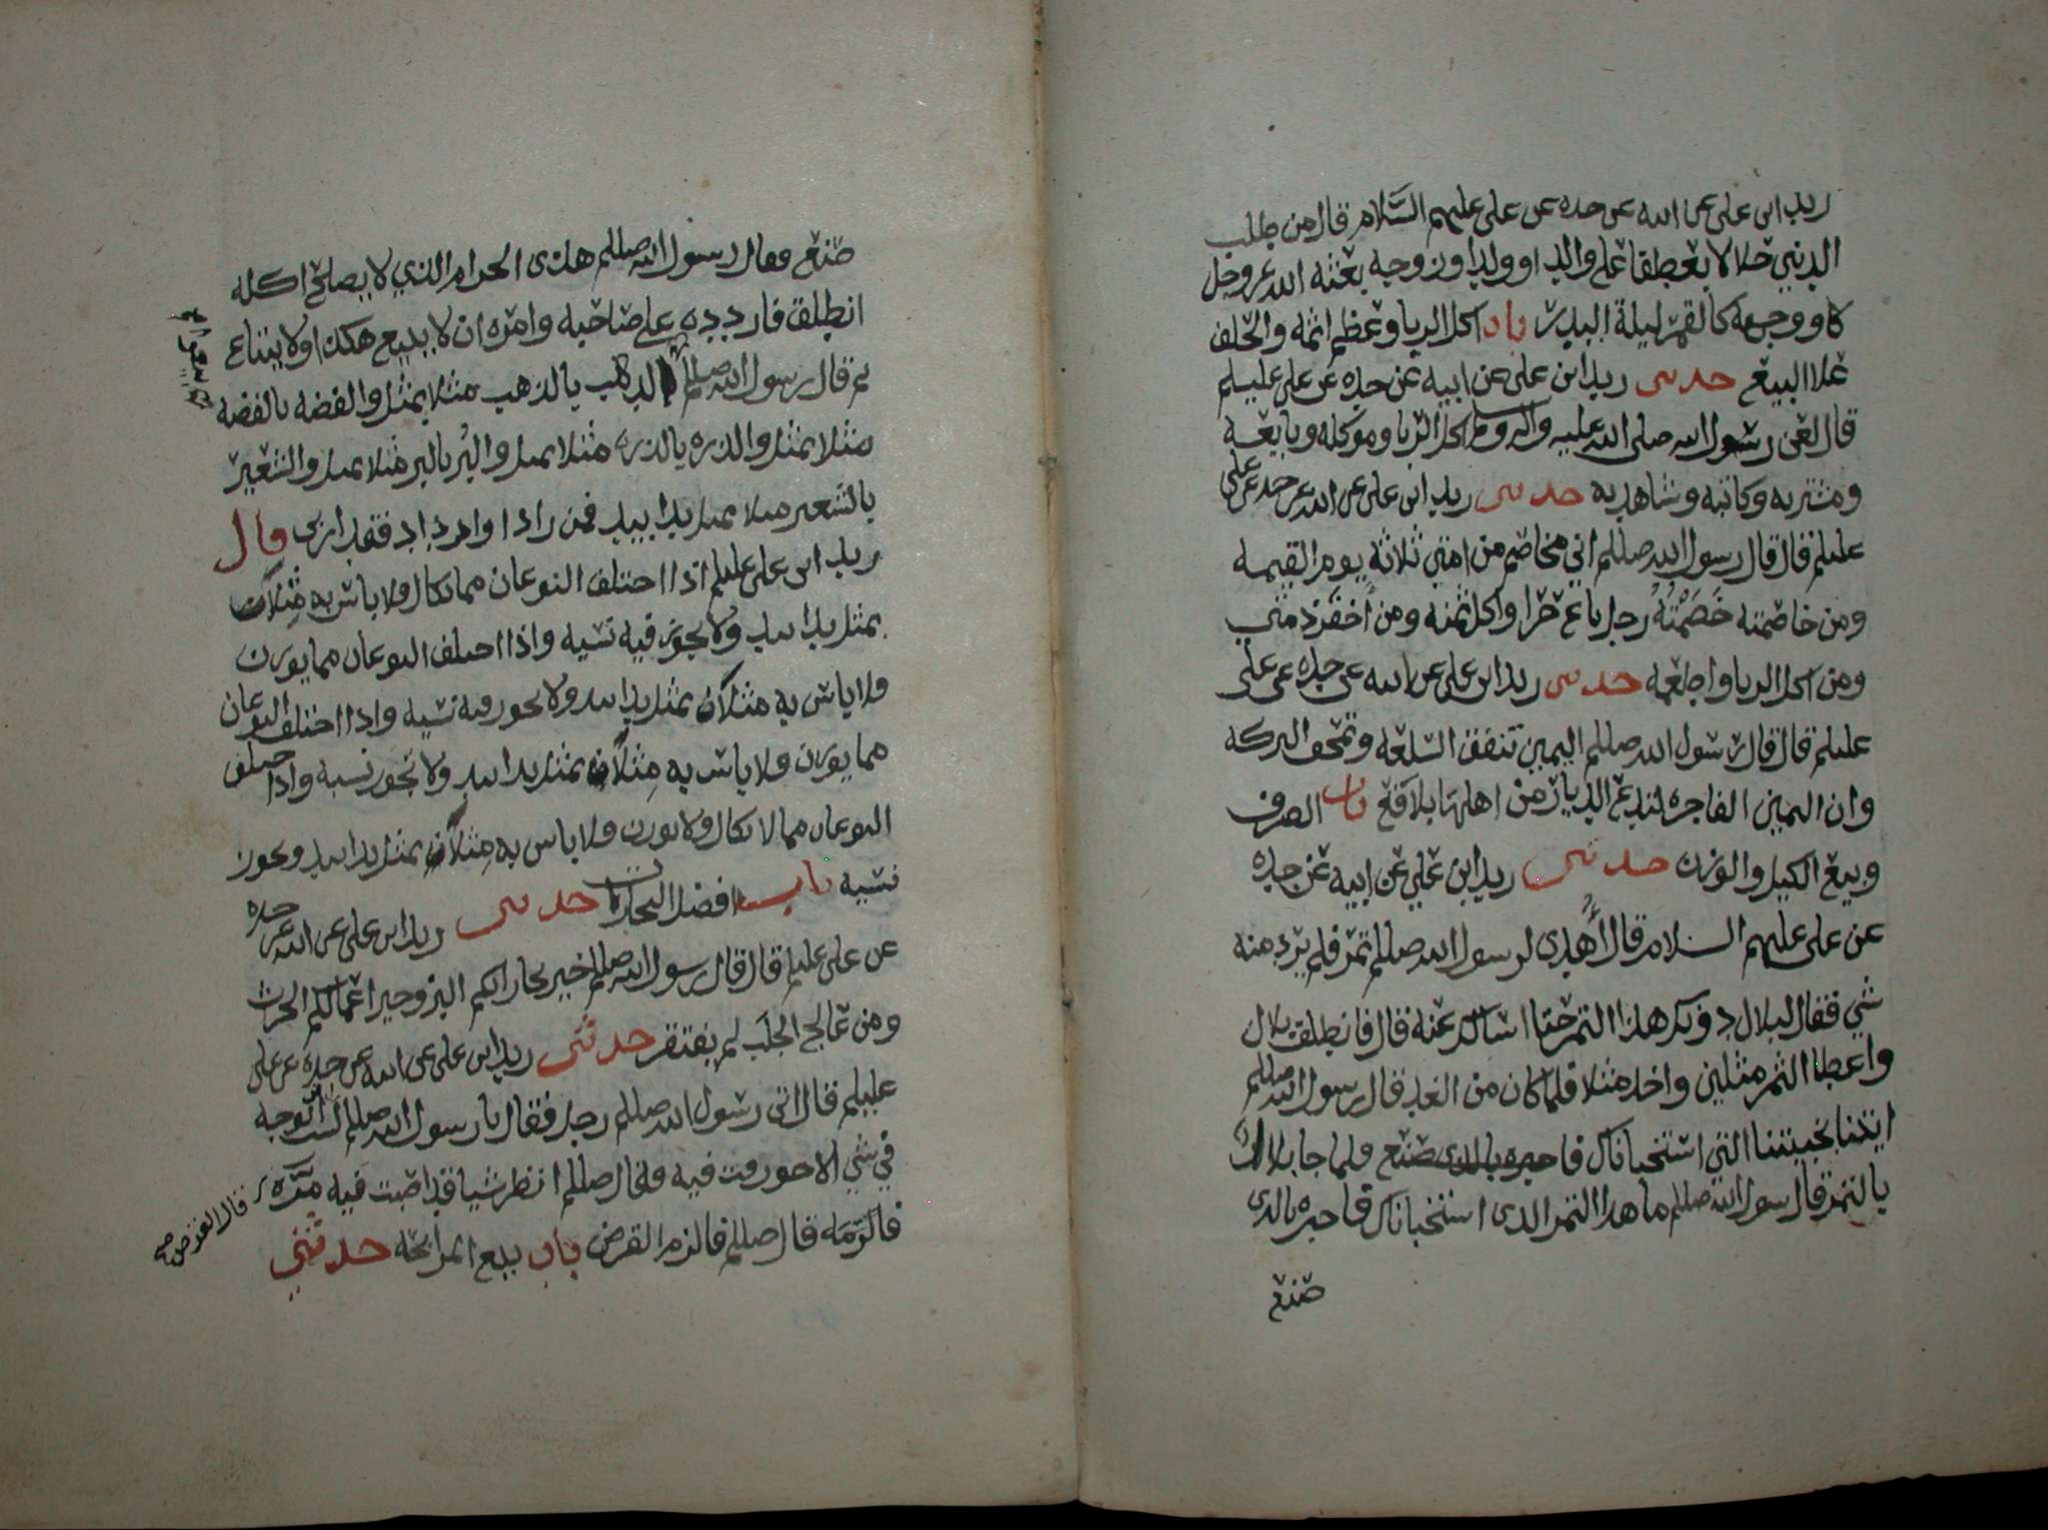 زيد ابن علي عن ابيه عن جده عن علي عليهم السلام قال من طلب
الدنيي حلالا يعطفا على والد او ولد او زوجه بعثه الله عز وجل
ووجهه كالقمر ليلة البدر باب اكل الربا وعظم اثمه والحلف
علا البيع حدثني زيد ابن علي عن ابيه عن جده عن علي عليلم
قال لعن رسول الله صلى الله عليه واله وسلم اكل الربا وموكله وبايعه
ومشتريه وكاتبه وشاهديه حدثني زيد ابن علي عن ابيه عن جده عن علي
عليلم قال قال رسول الله صللم اني مخاصم من امتي ثلاثة يوم القيمه
ومن خاصمته خصمته رجل باع حرا واكل ثمنه ومن اخفر ذمتي
ومن اكل الربا واطعمه حدثني زيد ابن علي عن ابيه عن جده عن علي
عليلم قال قال رسول الله صللم اليمين تنفق السلعه وتمحق البركه
وان اليمين الفاجره لتدع الديار من اهلها بلاقع باب الصرف
وبيع الكيل والوزن حدثني زيد ابن علي عن ابيه عن جده
عن علي عليهم السلام قال اهدي لرسول الله صللم تمر فلم يرد منه
شي فقال لبلال دونك هذا التمر حتا اسالك عنه قال فانطلق بلال
واعطا التمر مثلين واخذ مثلا فلما كان من الغد قال رسول الله صللم
ايتنا بخبيتنا التي استخباناك فاخبره بالذي صنع فلما جا بلال
بالتمر قال رسول الله صللم ما هذا التمر الذي استخباناك فاخبره بالذي
صنع
صنع فقال رسول الله صللم هذى الحرام الذي لا يصلح اكله
انطلق فاردده على صاحبه وامره ان لا يبيع هكذا ولا يبتاع
ثم قال رسول الله صللم الذهب بالذهب مثلا بمثل والفضه بالفضه
مثلا بمثل والذره بالذره مثلا بمثل والبر بالبر مثلا بمثل والشعير
بالشعير مثلا بمثل يدا بيد فمن زاد او ازداد فقد اربى قال
زيد ابن علي عليلم اذا اختلف النوعان مما يكال ولا باس به مثلان
بمثل يدا بيد ولا يجوز فيه نسيه واذا اختلف النوعان مما يوزن
ولا باس به مثلان بمثل يدا بيد ولا يجوز فيه نسيه واذا اختلف النوعان
مما يوزن ولا باس به مثلان بمثل يدا بيد ولا تجوز نسيه واذا اختلف
النوعان مما لا يكال ولا يوزن ولا باس به مثلان بمثل يدا بيد ويجوز
نسيه باب افضل التجارات حدثني زيد ابن علي عن ابيه عن جده
عن علي عليلم قال قال رسول الله صللم خير تجاراتكم البز وخير اعمالكم الحرث
ومن عالج الجلب لم يفتقر حدثني زيد ابن علي عن ابيه عن جده عن علي
عليلم قال اتى رسول الله صللم رجل فقال يا رسول الله صللم لست اتوجه
في شي الا حورفت فيه فقال صللم انظر شيا قد اصبت فيه مره
قال القرض صح
فالزمه قال صللم فالزم القرض باب بيع المرابحه حدثني